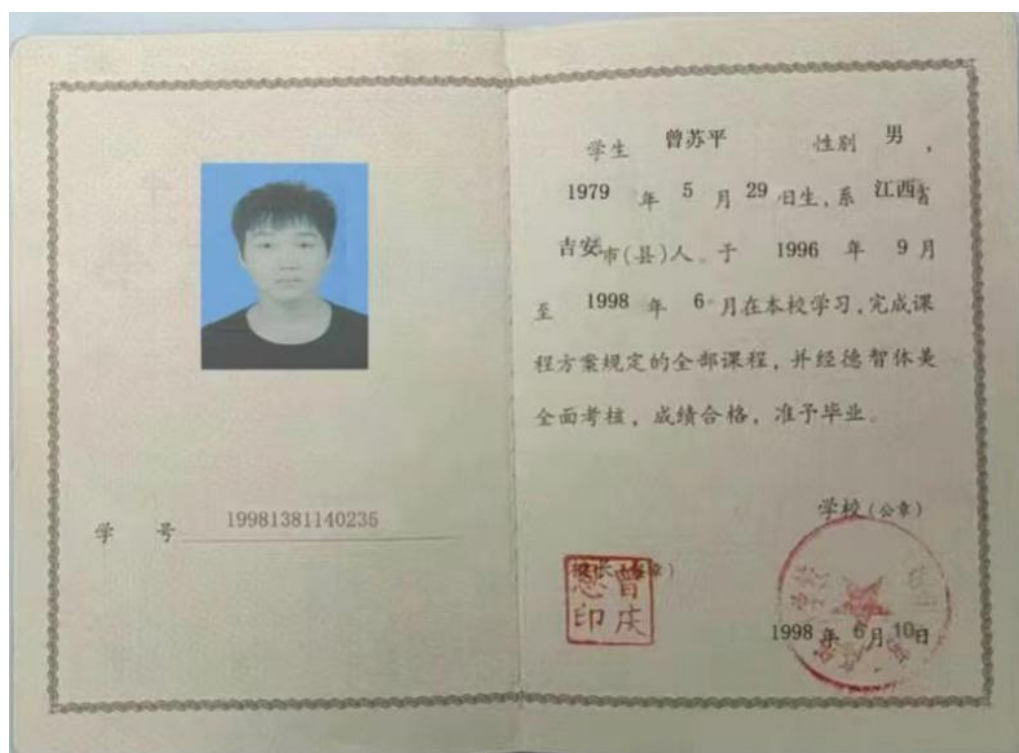 学号 19981381140235
学生 曾苏平 性别 男，
1979 年 5 月 29 日生，系 江西省
吉安市(县)人。于 1996 年 9 月
至 1998 年 6 月在本校学习，完成课
程方案规定的全部课程，并经德智体美
全面考核，成绩合格，准予毕业。
学校(公章)
校长(签章)
曾庆
印
1998 年 6 月 10 日